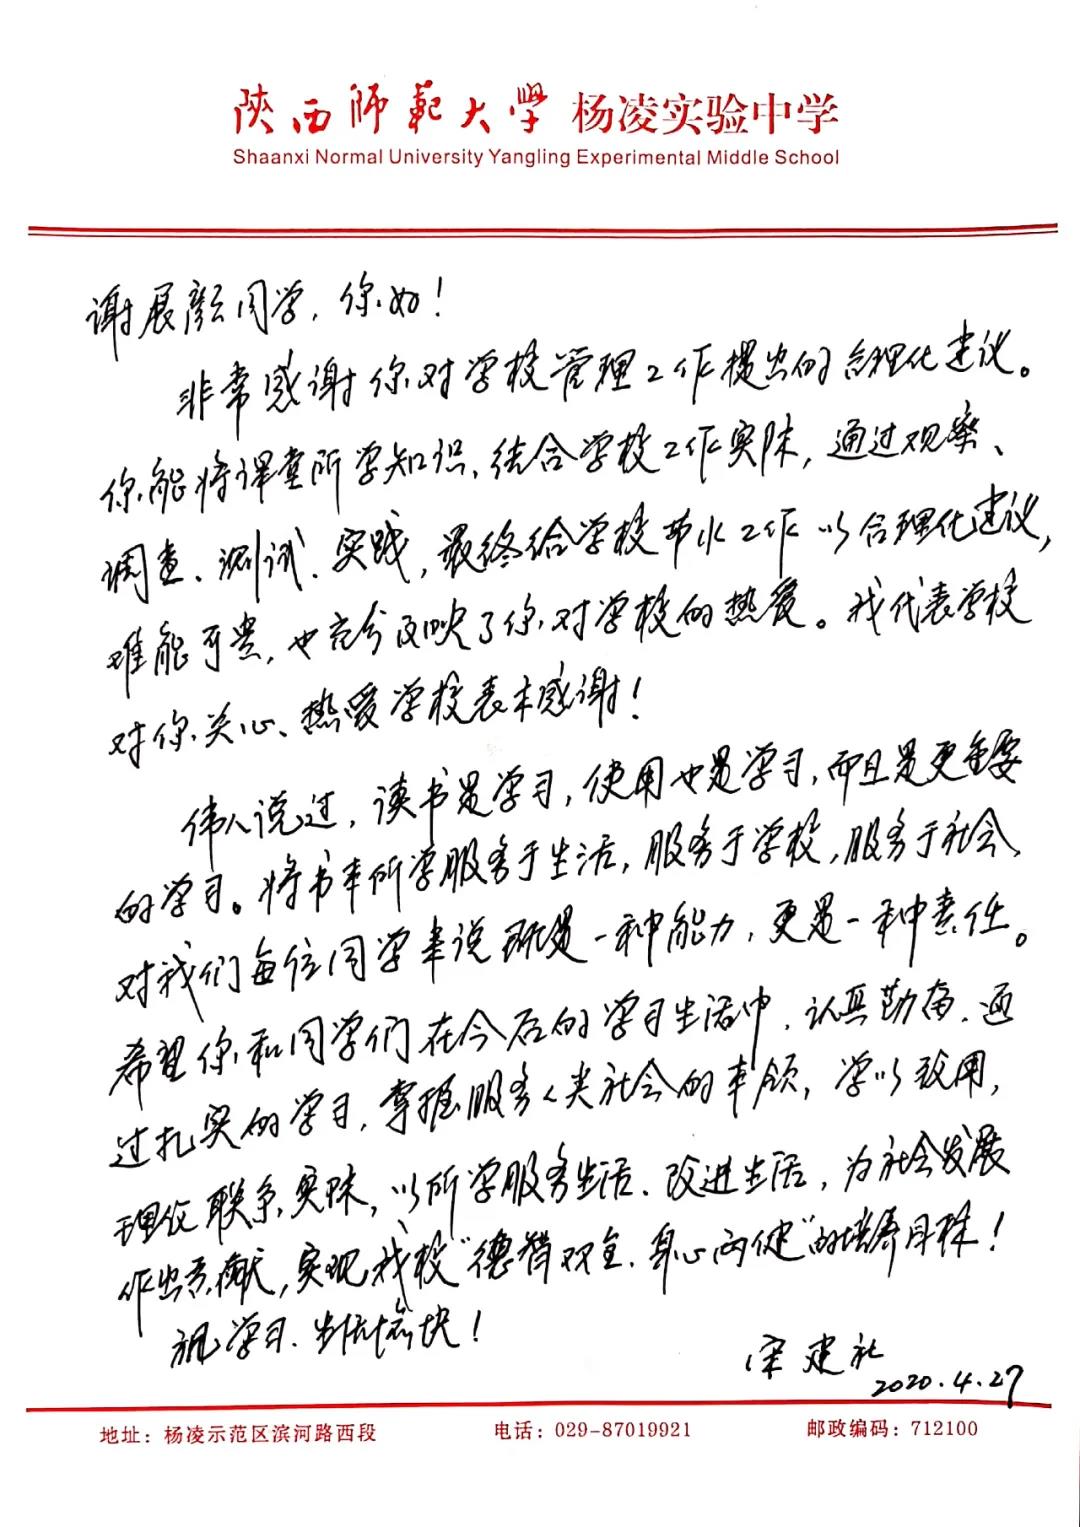 陕西师范大学 杨凌实验中学
Shaanxi Normal University Yangling Experimental Middle School
谢展颜同学，你好！
非常感谢你对学校管理工作提出的合理化建议。
你能将课堂所学知识，结合学校工作实际，通过观察、
调查、测试、实践，最终给学校节水工作以合理化建议，
难能可贵，也充分反映了你对学校的热爱。我代表学校
对你关心、热爱学校表示感谢！
伟人说过，读书是学习，使用也是学习，而且是更重要
的学习。将书本所学服务于生活，服务于学校，服务于社会，
对我们每位同学来说既是一种能力，更是一种责任。
希望你和同学们在今后的学习生活中，认真勤奋，通
过扎实的学习，掌握服务人类社会的本领，学以致用，
理论联系实际，以所学服务生活、改进生活，为社会发展
作出贡献，实现我校“德智双全、身心两健”的培养目标！
祝学习、生活愉快！
宋建社
2020.4.27
地址：杨凌示范区滨河路西段 电话：029-87019921 邮政编码：712100